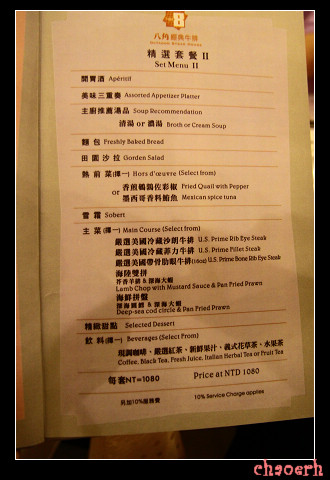 8
八角經典牛排
精選套餐 II
Set Menu II
開胃酒 Apéritif
美味三重奏 Assorted Appetizer Platter
主廚推薦湯品 Soup Recommendation
清湯 or 濃湯 Broth or Cream Soup
麵包 Freshly Baked Bread
田園沙拉 Gorden Salad
熱前菜(擇一) Hors d'œuvre (Select from)
香煎鵪鶉佐彩椒 Fried Quail with Pepper
or 墨西哥香料鮪魚 Mexican spice tuna
雪霜 Sobert
主菜(擇一) Main Course (Select from)
嚴選美國冷藏沙朗牛排 U.S. Prime Rib Eye Steak
嚴選美國冷藏菲力牛排 U.S. Prime Fillet Steak
嚴選美國帶骨肋眼牛排(18oz) U.S. Prime Bone Rib Eye Steak
海陸雙拼
芥香羊排 & 深海大蝦
Lamb Chop with Mustard Sauce & Pan Fried Prawn
海鮮拼盤
深海圓鱈 & 深海大蝦
Deep-sea cod circle & Pan Fried Prawn
精緻甜點 Selected Dessert
飲料(擇一) Beverages (Select From)
現調咖啡、嚴選紅茶、新鮮果汁、義式花草茶、水果茶
Coffee, Black Tea, Fresh Juice, Italian Herbal Tea or Fruit Tea
每套NT=1080 Price at NTD 1080
另加10%服務費 10% Service Charge applies
chaoerh